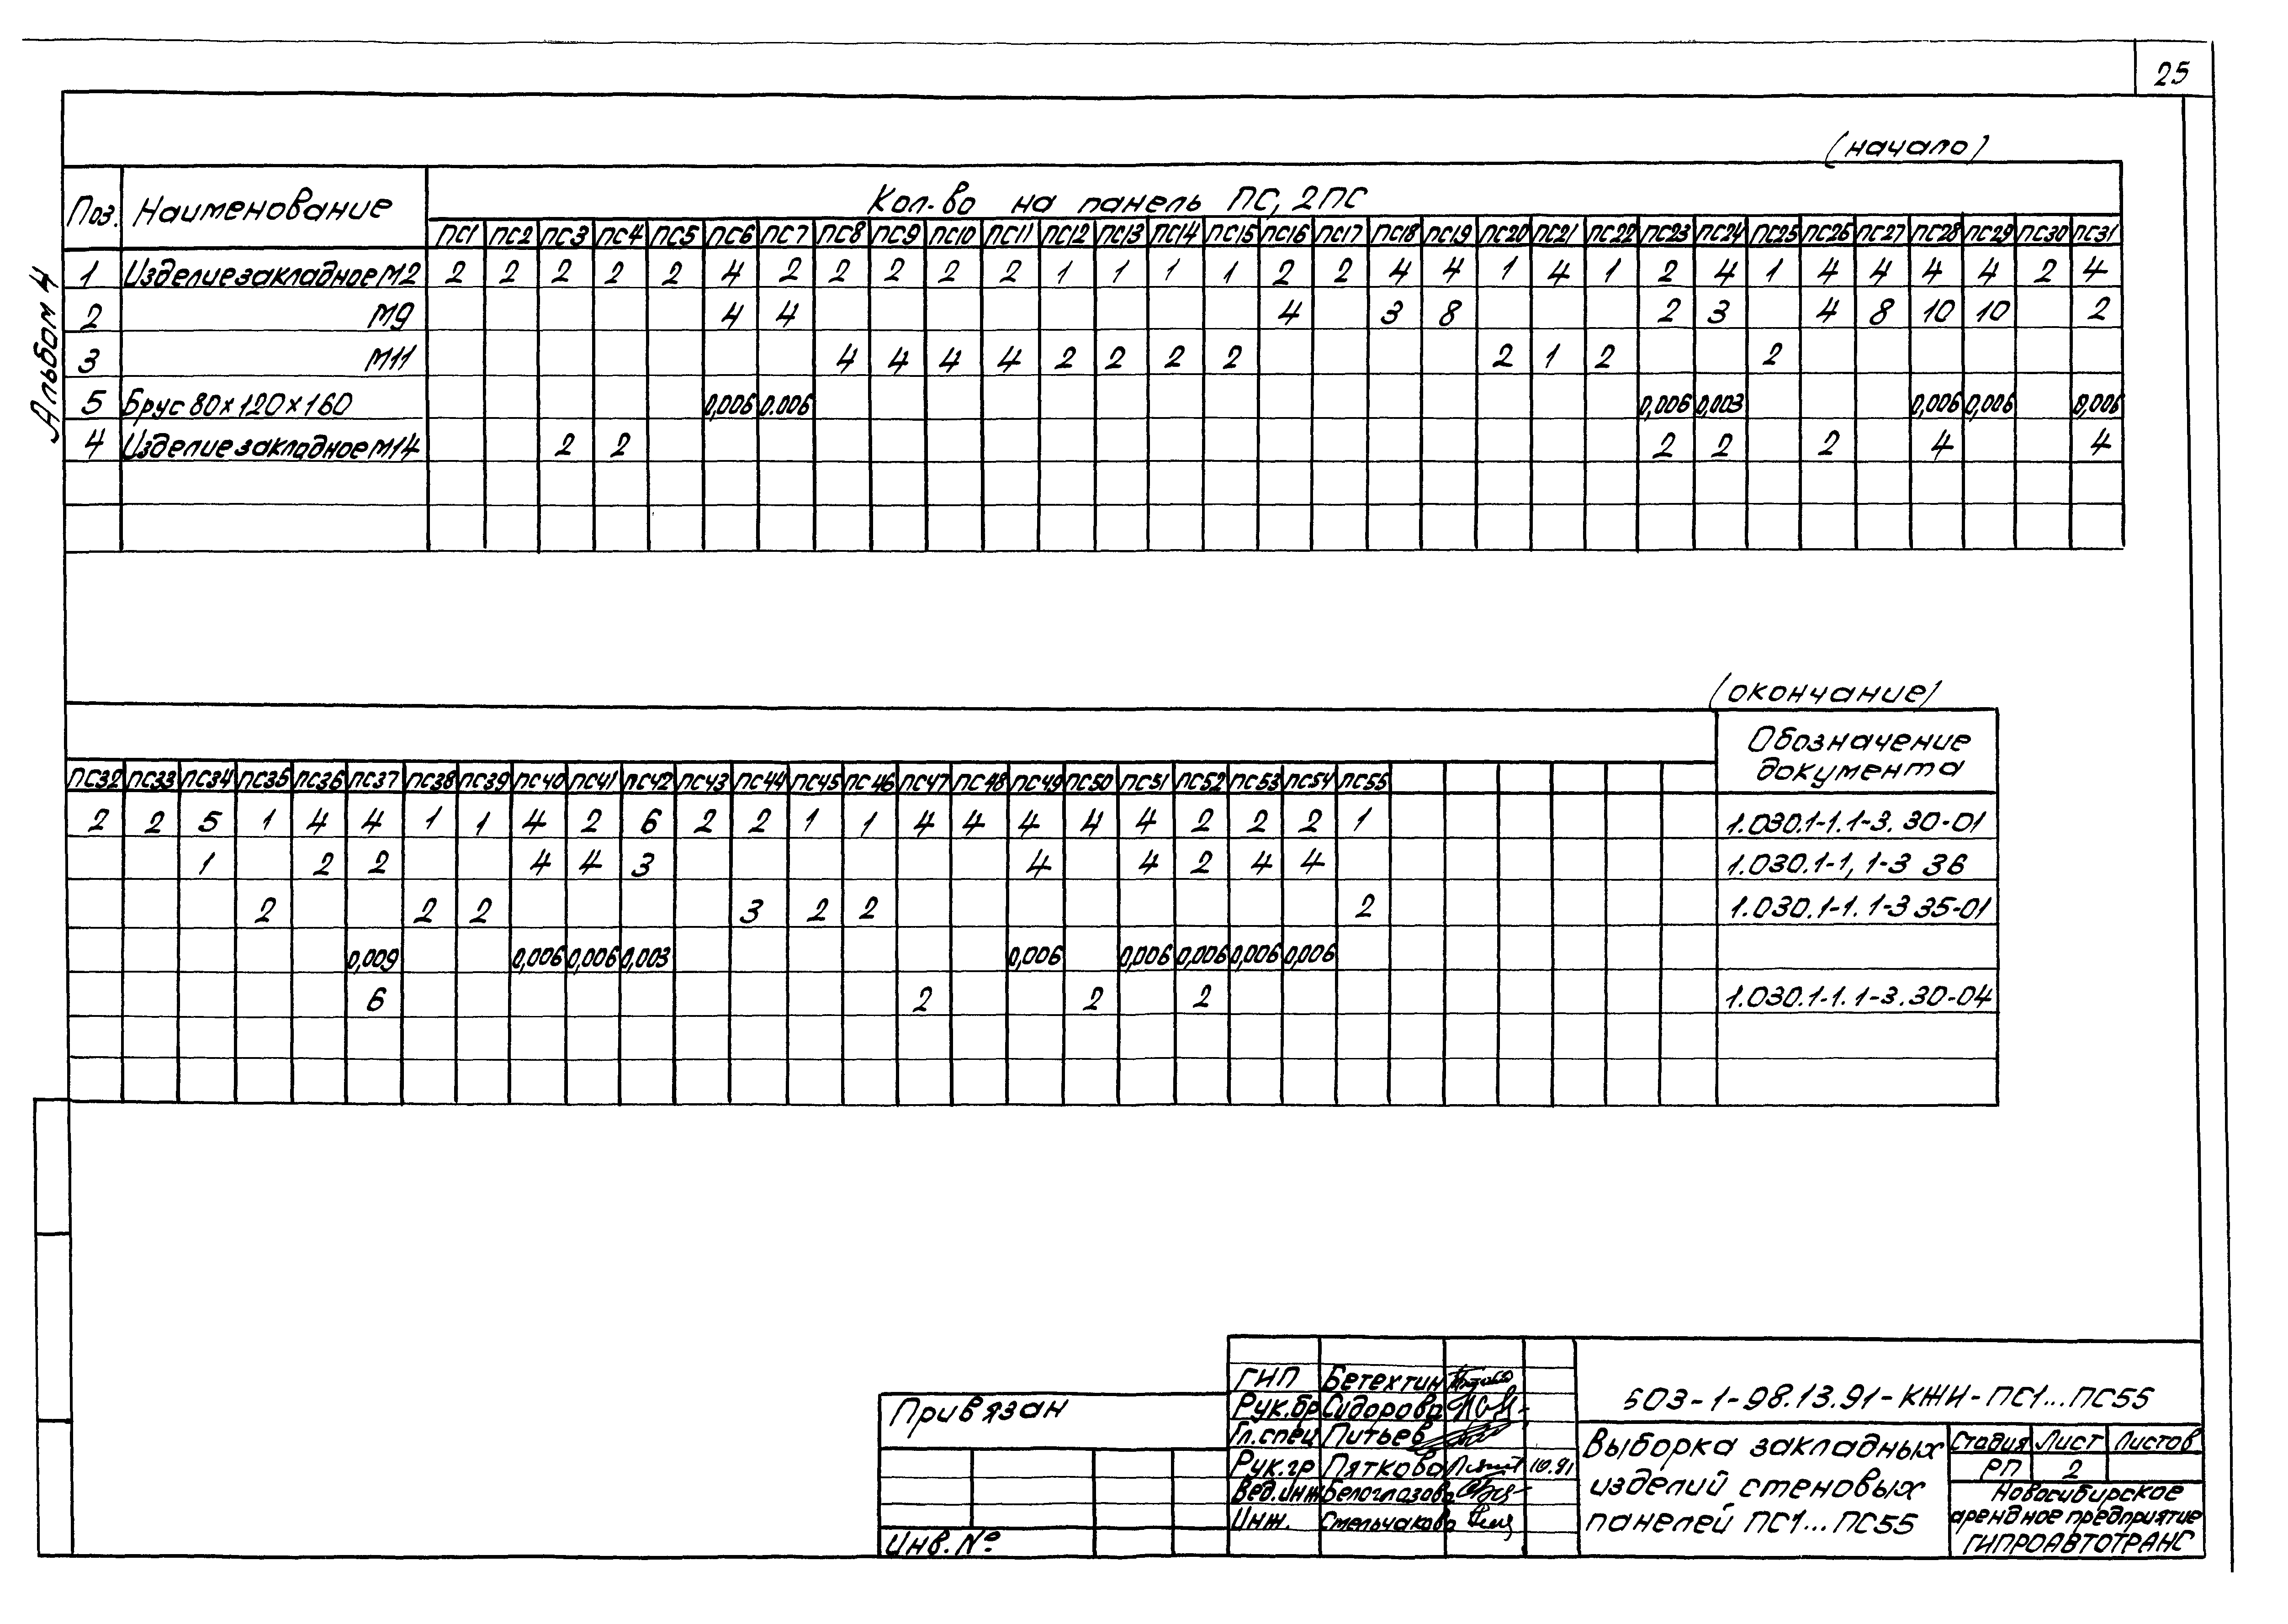 25
Альбом 4
(начало)
Поз. Наименование Кол-во на панель ПС, 2ПС
ПС1 ПС2 ПС3 ПС4 ПС5 ПС6 ПС7 ПС8 ПС9 ПС10 ПС11 ПС12 ПС13 ПС14 ПС15 ПС16 ПС17 ПС18 ПС19 ПС20 ПС21 ПС22 ПС23 ПС24 ПС25 ПС26 ПС27 ПС28 ПС29 ПС30 ПС31
1 Изделие закладное М2 2 2 2 2 2 4 2 2 2 2 2 1 1 1 1 2 2 4 4 1 4 1 2 4 1 4 4 4 4 2 4
2 М9 4 4 4 3 8 2 3 4 8 10 10 2
3 М11 4 4 4 4 2 2 2 2 2 1 2 2
5 Брус 80×120×160 0,006 0.006 0,006 0,003 0,006 0,006 0,006
4 Изделие закладное М14 2 2 2 2 2 4 4
(окончание)
Обозначение
документа
ПС32 ПС33 ПС34 ПС35 ПС36 ПС37 ПС38 ПС39 ПС40 ПС41 ПС42 ПС43 ПС44 ПС45 ПС46 ПС47 ПС48 ПС49 ПС50 ПС51 ПС52 ПС53 ПС54 ПС55
2 2 5 1 4 4 1 1 4 2 6 2 2 1 1 4 4 4 4 4 2 2 2 1 1.030.1-1.1-3. 30-01
1 2 2 4 4 3 4 4 2 4 4 1.030.1-1, 1-3 36
2 2 2 3 2 2 2 1.030.1-1. 1-3 35-01
0,009 0,006 0,006 0,003 0,006 0,006 0,006 0,006 0,006
6 2 2 2 1.030.1-1.1-3.30-04
Привязан
Инв. №
ГИП Бетехтин
Рук.бр Сидорова
Гл.спец Питьев
Рук.гр Пяткова 10.91
Вед.инж Белоглазова
Инж. Смельчакова
503-1-98.13.91-КЖИ-ПС1...ПС55
Выборка закладных
изделий стеновых
панелей ПС1...ПС55
Стадия Лист Листов
РП 2
Новосибирское
арендное предприятие
ГИПРОАВТОТРАНС